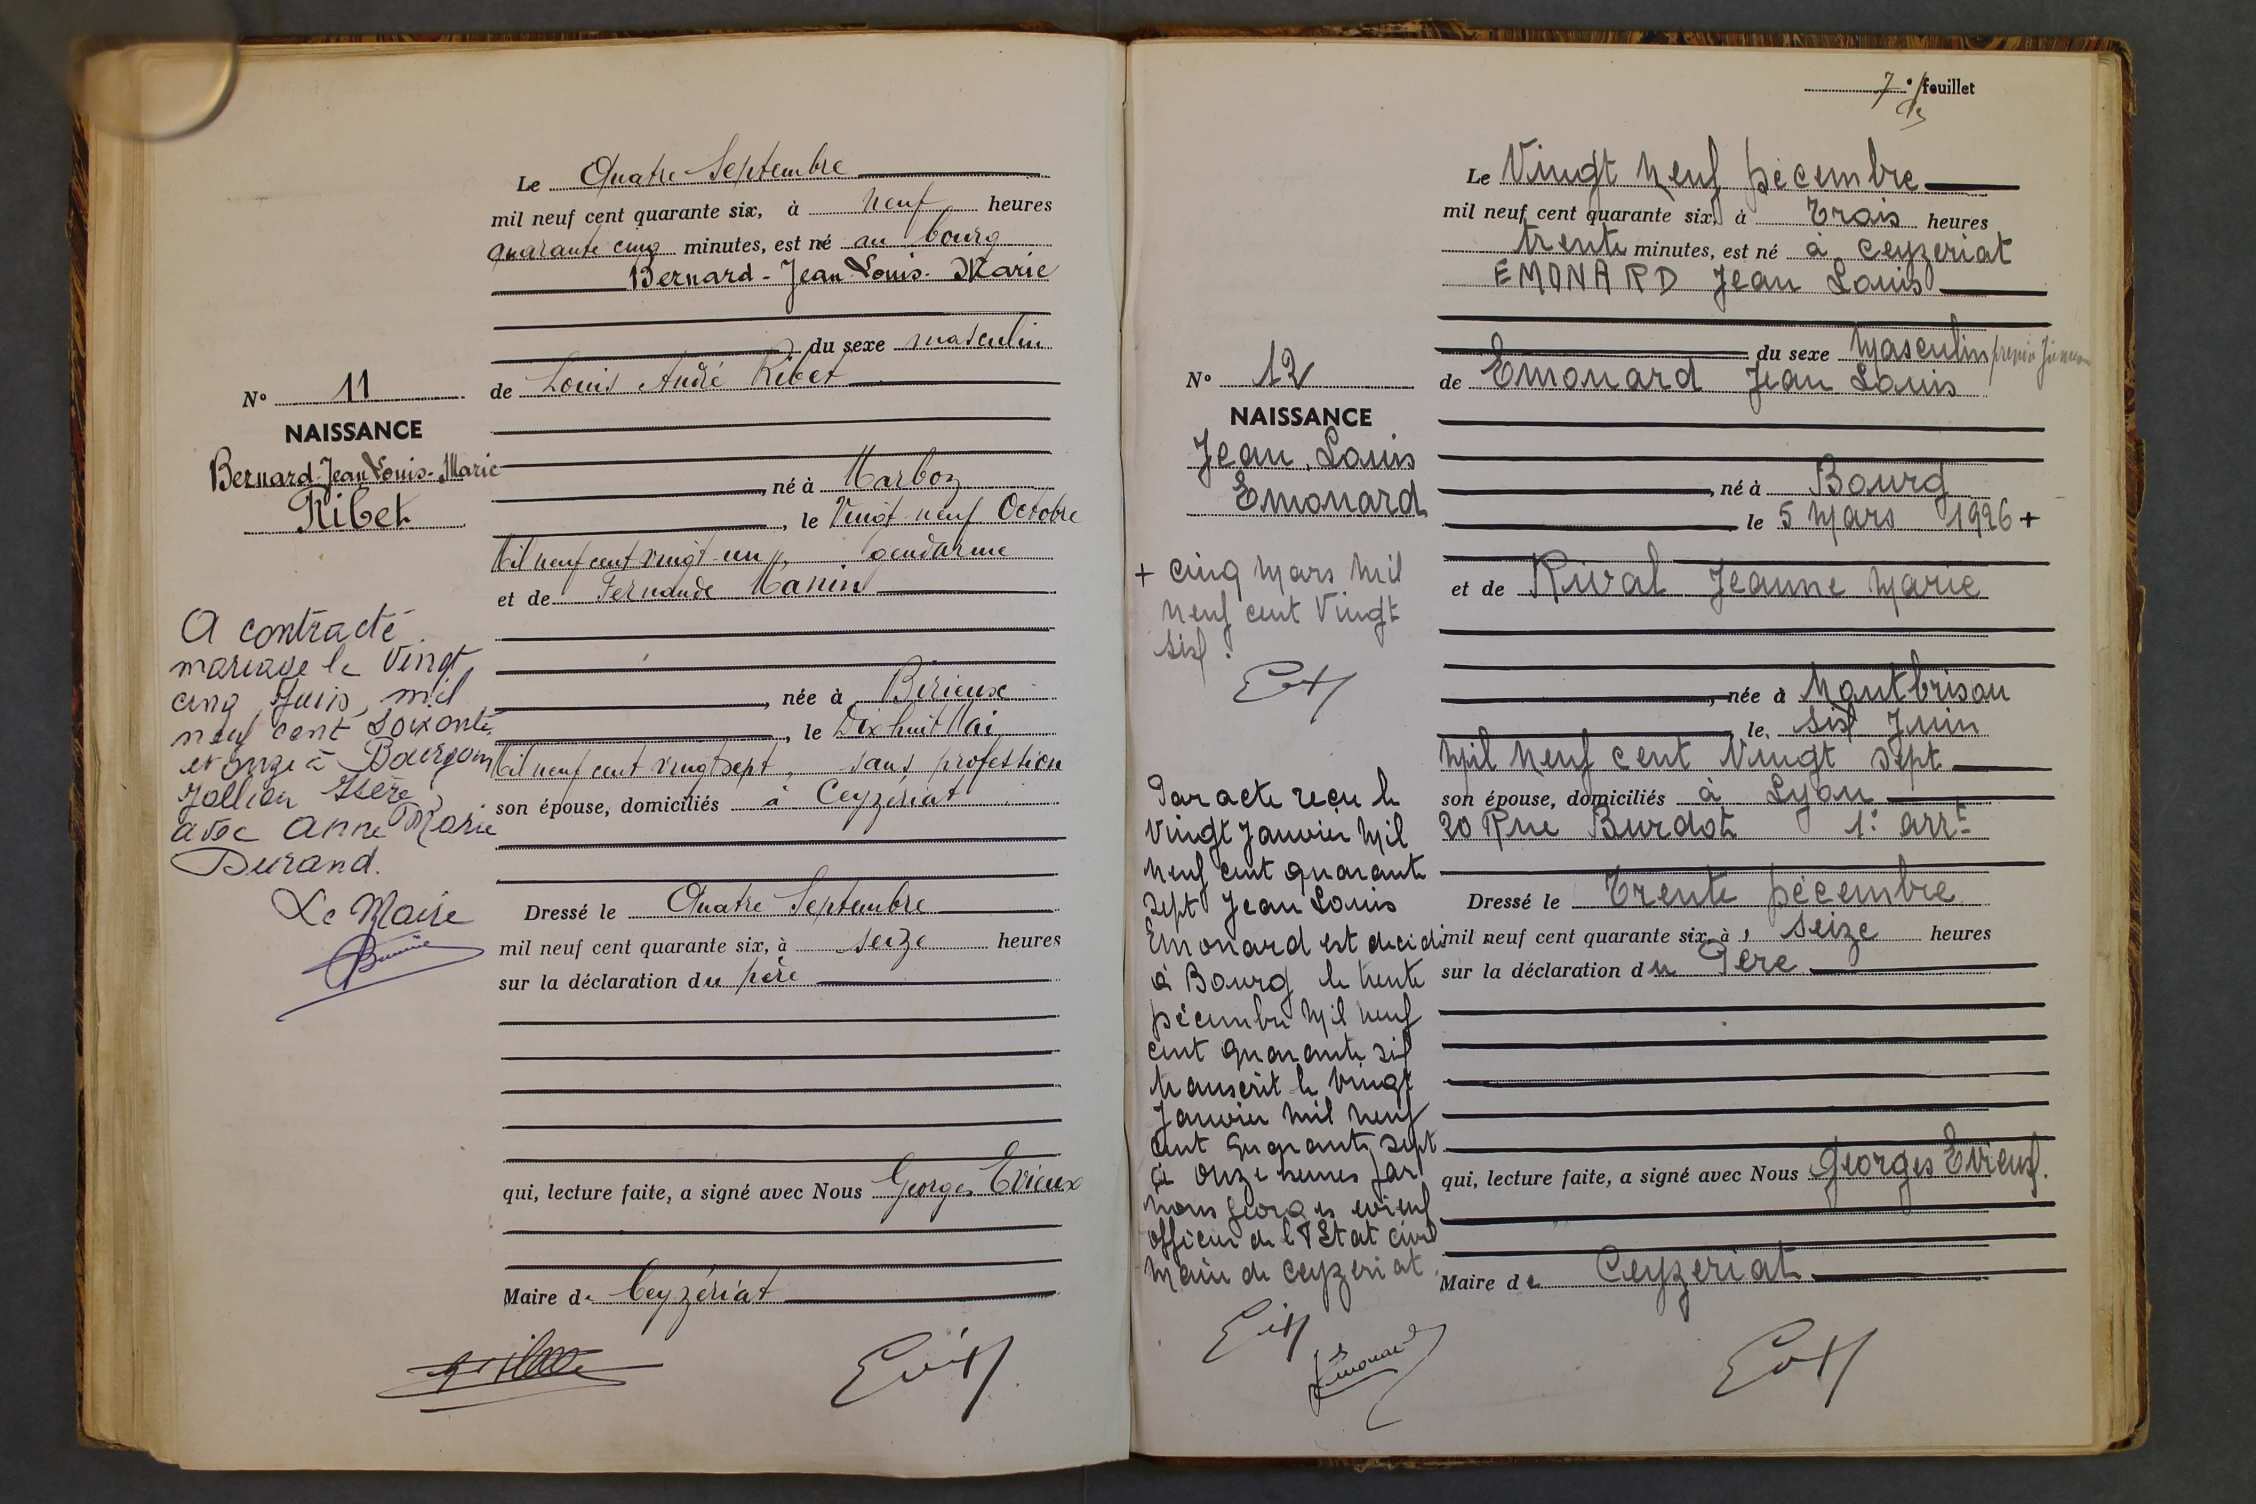 Le Quatre Septembre
mil neuf cent quarante six, à neuf heures
quarante cinq minutes, est né au bourg
Bernard - Jean Louis - Marie
du sexe masculin
de Louis André Ribet
né à Marboz
, le Vingt-neuf Octobre
Mil neuf cent vingt-un, gendarme
et de Fernande Manin
, née à Birieux
, le Dix huit Mai
Mil neuf cent vingt sept, sans profession
son épouse, domiciliés à Ceyzériat
Dressé le Quatre Septembre
mil neuf cent quarante six, à seize heures
sur la déclaration du père
qui, lecture faite, a signé avec Nous Georges Evieux
Maire de Ceyzériat
N° 11
NAISSANCE
Bernard-Jean Louis-Marie
Ribet
A contracté
mariage le Vingt
cinq Juin, mil
neuf cent soixante
et onze à Bourgoin
Jallieu Isère
avec Anne Marie
Durand.
Le Maire
7e feuillet
Le Vingt Neuf Décembre
mil neuf cent quarante six, à Trois heures
trente minutes, est né à Ceyzeriat
EMONARD Jean Louis
du sexe Masculin premier Jumeau
de Emonard Jean Louis
, né à Bourg
le 5 Mars 1926 +
et de Rival Jeanne Marie
, née à Montbrison
le Six Juin
Mil Neuf Cent Vingt Sept
son épouse, domiciliés à Lyon
20 Rue Burdot 1er arrt
Dressé le Trente Décembre
mil neuf cent quarante six, à Seize heures
sur la déclaration du Père
qui, lecture faite, a signé avec Nous Georges Evieux.
Maire de Ceyzeriat
N° 12
NAISSANCE
Jean, Louis
Emonard
+ cinq Mars Mil
Neuf cent Vingt
Six.
Par acte reçu le
Vingt Janvier Mil
Neuf cent quarante
sept Jean Louis
Emonard est décédé
à Bourg le trente
Décembre Mil neuf
cent quarante six
transcrit le vingt
Janvier Mil neuf
cent quarante sept
à onze heures par
nous Georges Evieux
officier de l'Etat civil
Maire de Ceyzeriat.
Emonard